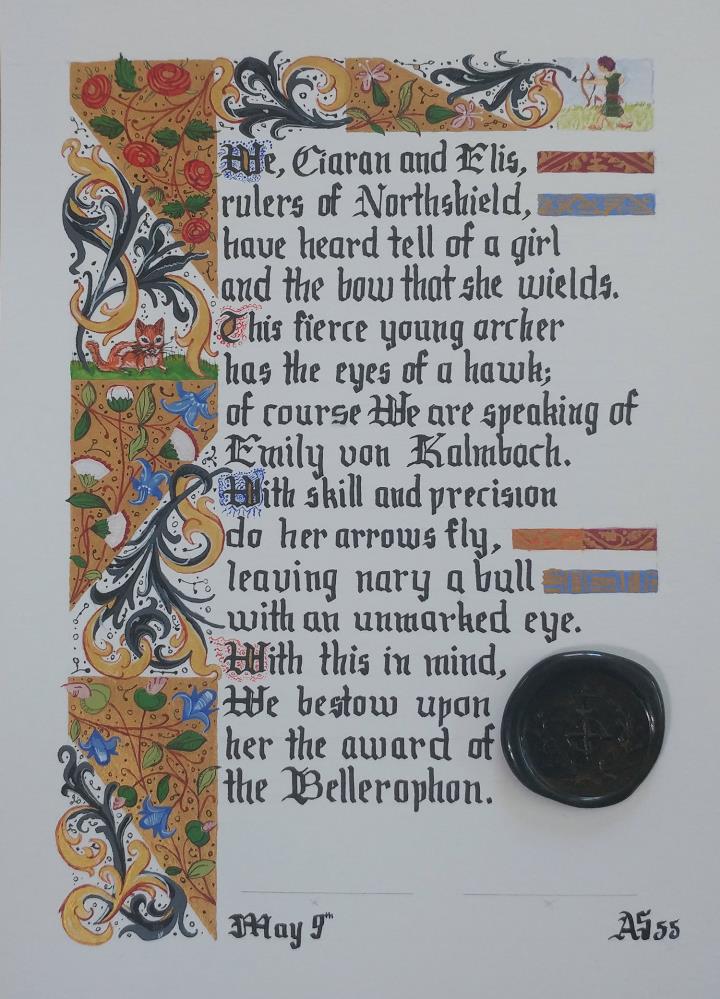 We, Ciaran and Elis,
rulers of Northshield,
have heard tell of a girl
and the bow that she wields.
This fierce young archer
has the eyes of a hawk;
of course We are speaking of
Emily von Kalmbach.
With skill and precision
do her arrows fly,
leaving nary a bull
with an unmarked eye.
With this in mind,
We bestow upon
her the award of
the Bellerophon.
May 9th
AS 55